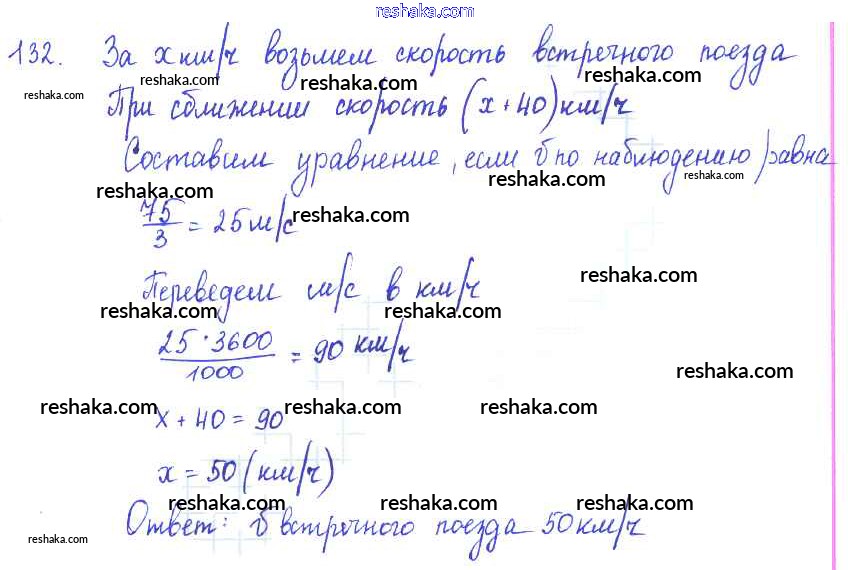 reshaka.com
132. За x км/ч возьмем скорость встречного поезда
reshaka.com reshaka.com reshaka.com reshaka.com
При сближении скорость (x + 40) км/ч
Составим уравнение, если υ по наблюдению равна
reshaka.com reshaka.com reshaka.com
75/3 = 25 м/с
reshaka.com
Переведем м/с в км/ч
reshaka.com
reshaka.com reshaka.com
25 · 3600 / 1000 = 90 км/ч
reshaka.com
x + 40 = 90
reshaka.com reshaka.com reshaka.com
x = 50 (км/ч)
reshaka.com reshaka.com reshaka.com
Ответ: υ встречного поезда 50 км/ч
reshaka.com